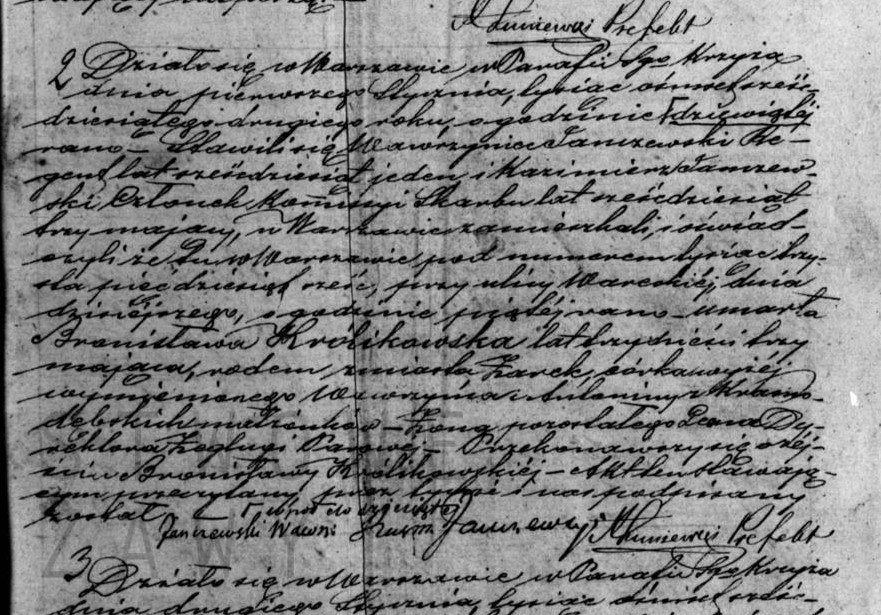 Prefekt
2 Działo się w Warszawie w Parafii Sgo Krzyża
dnia pierwszego Stycznia, tysiąc ośmset sześć-
dziesiątego drugiego roku, o godzinie dziewiątej
rano – Stawili się Wawrzyniec Janczewski Re-
gent lat sześćdziesiąt jeden i Kazimierz Janczew-
ski Członek Kommisyi Skarbu lat sześćdziesiąt
trzy mający, w Warszawie zamieszkali, i oświad-
czyli że tu w Warszawie pod numerem tysiąc trzy-
sta pięćdziesiąt sześć, przy ulicy Wareckiej, dnia
dzisiejszego, o godzinie piątej rano – umarła
Bronisława Królikowska lat trzydzieści trzy
mająca, rodem z miasta Żarek, córka wyżej
wymienionego Wawrzyńca i Antoniny z
małżonków – Żona pozostałego Leona Dy-
rektora Żeglugi Parowej – Przekonawszy się o zej-
ściu Bronisławy Królikowskiej – Akt ten stawają-
cym przeczytany, przez i nas podpisany
został
Janczewski Wawrz Janczewski Prefekt
3 Działo się w Warszawie w Parafii Sgo Krzyża
dnia drugiego Stycznia, tysiąc ośmset sześć-